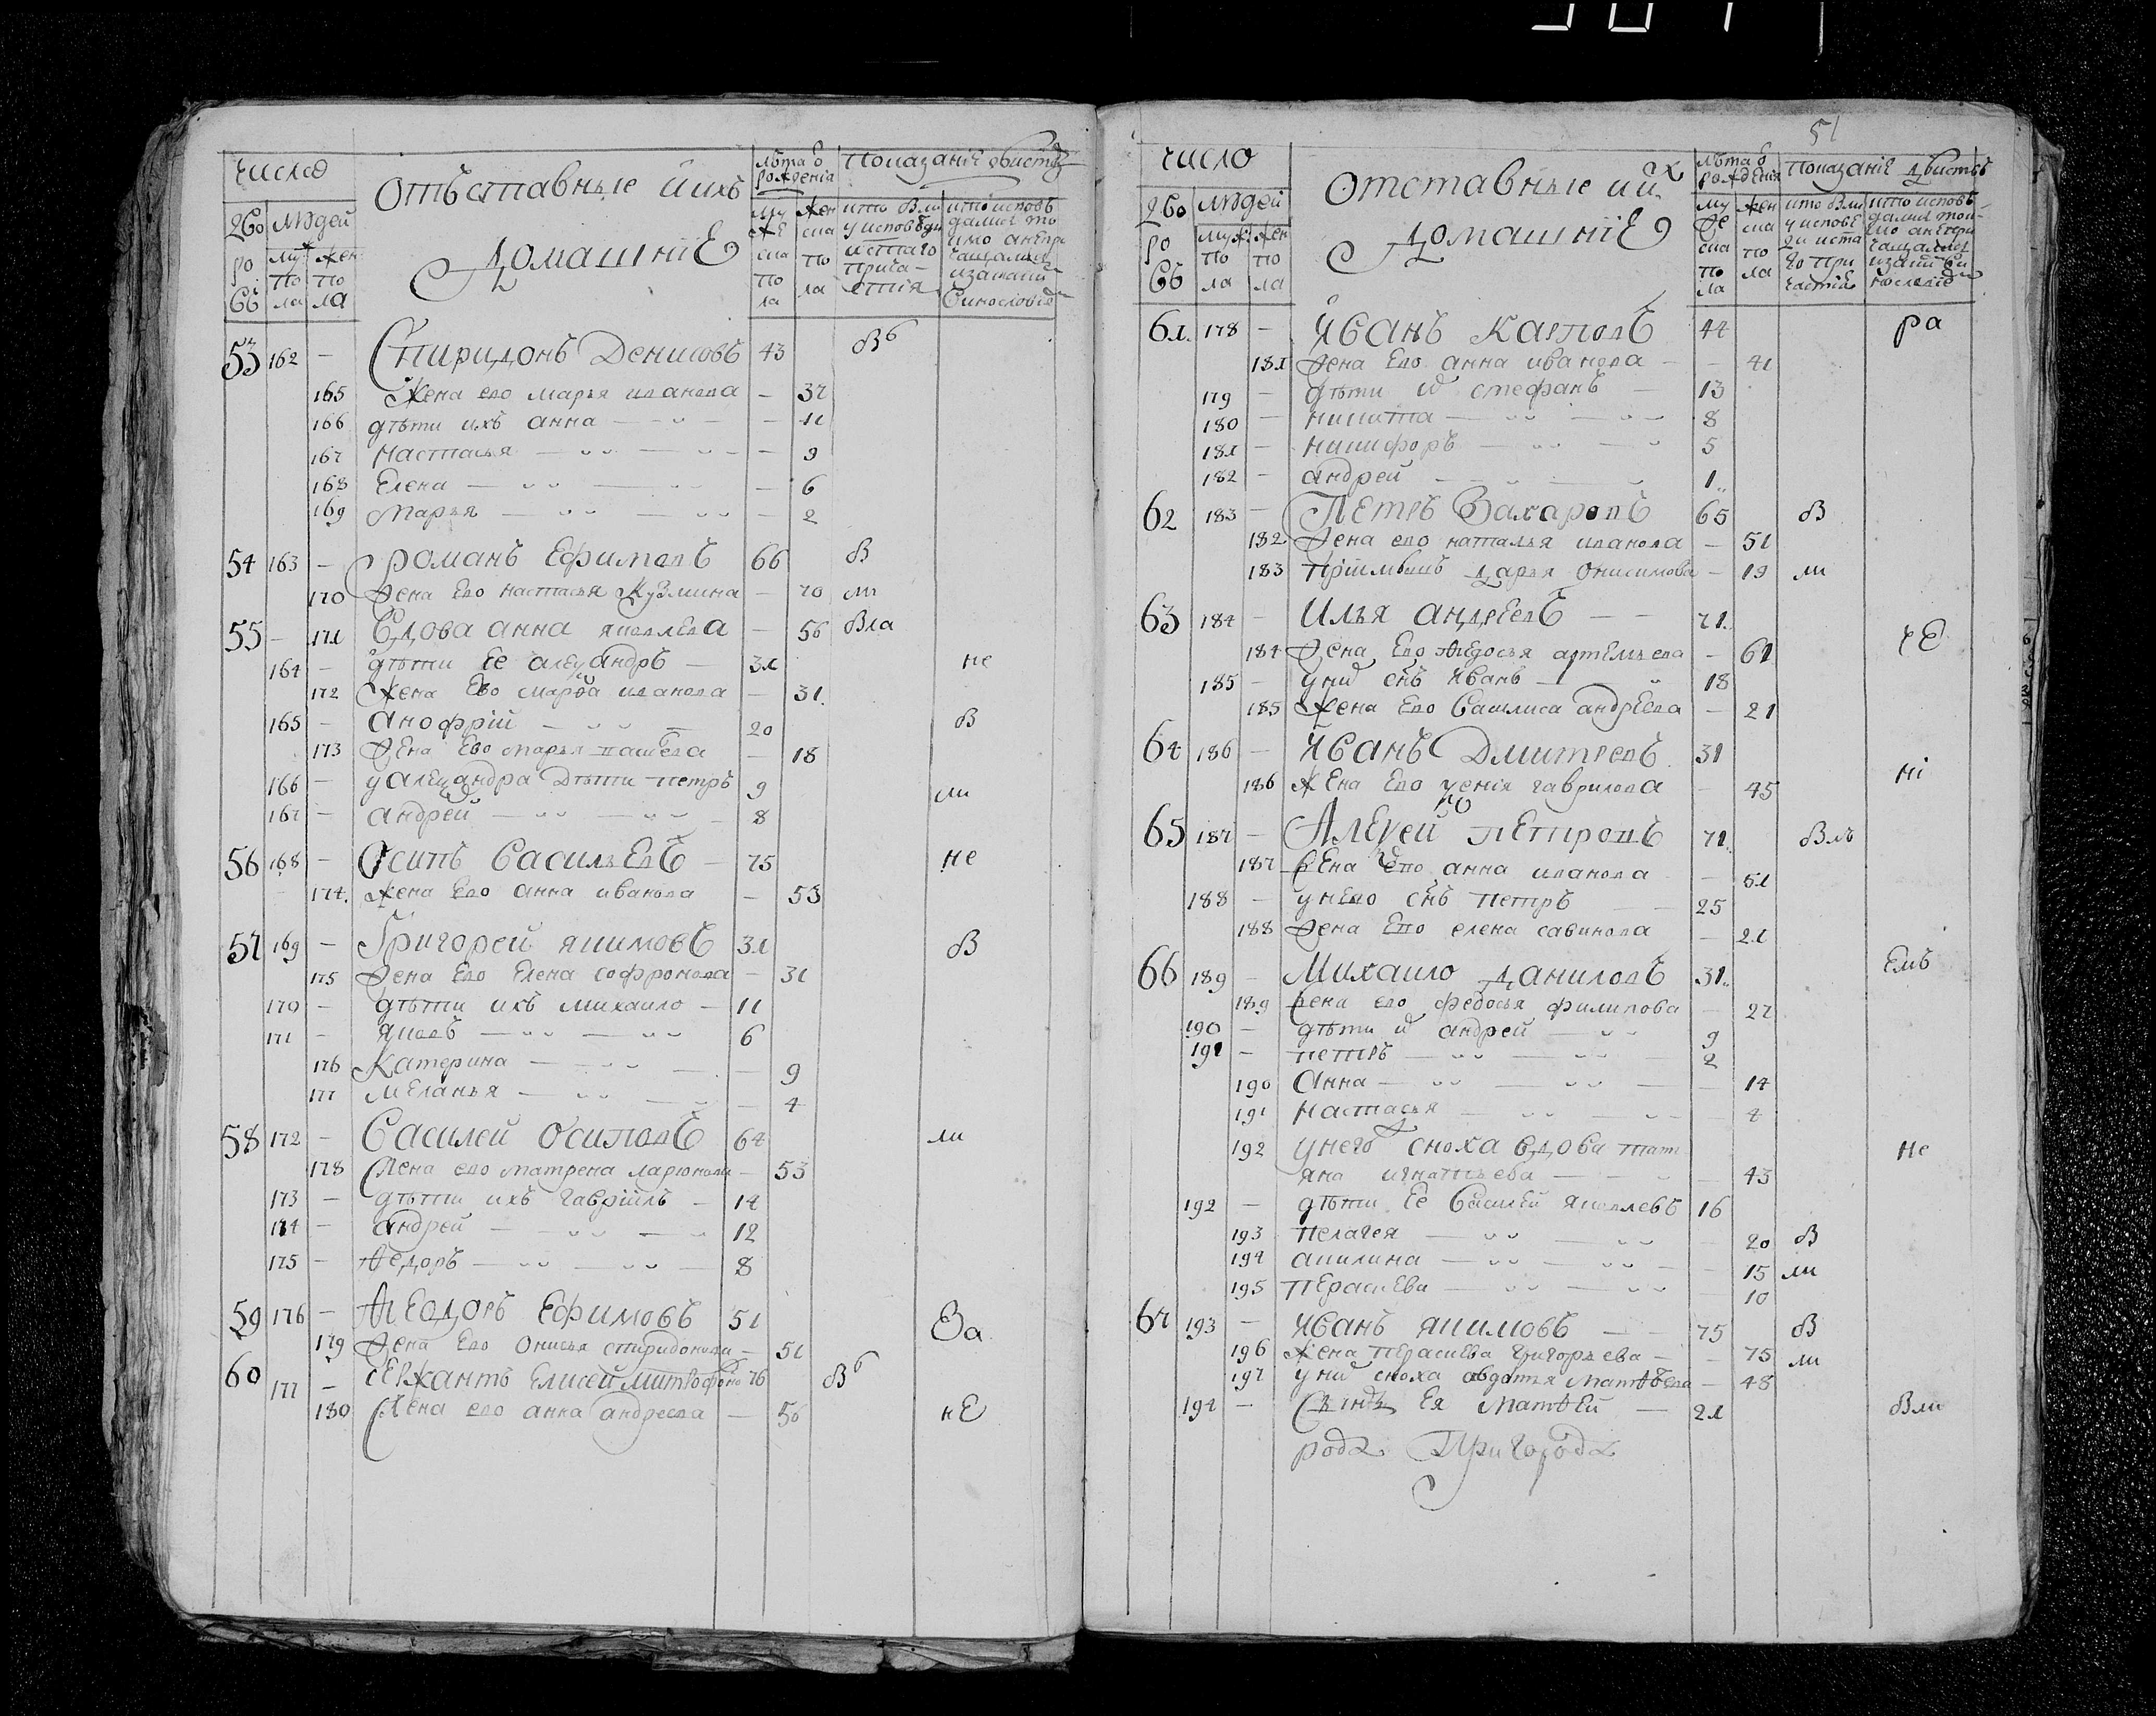 число
Отъставные й ихъ
Домашніе
лѣта ѿ рожденія
показаніе
дво ро въ
людей
муж по ла
жен по ла
му же ска по ла
жен ска по ла
53 162 — Спиридонъ Денисовъ 43 вб
165 Жена ево марья иванова — 32
166 дѣти ихъ анна — — 11
167 Настасья — — 9
168 Елена — — 6
169 Марья — — 2
54 163 — романъ Ефимовъ 66 в
170 Жена Ево настасья Кузмина — 70 ли
55 — 171 Вдова анна яковлева — 56 вла
164 — дѣти Ее алеѯандръ — 31 не
172 Жена Ево марѳа иванова — 31
165 — анофрій — 20 в
173 Жена Ево марья — 18
166 — у алеѯандра Дѣти петръ 9 ли
167 — андрей — 8
56 168 — Осипъ Васильевъ — 75 не
174 жена Ево анна иванова — 53
57 169 — Григорей якимовъ 31 в
175 Жена Ево Елена софронова — 31
170 — дѣти ихъ михаило — 11
171 — яковъ — 6
176 Катерина — — 9
177 Меланья — — 4
58 172 — Василей Осиповъ 64 ли
178 Жена ево матрена ларионова — 53
173 — дѣти ихъ гаврійлъ — 14
174 — андрей — 12
175 — Ѳедоръ — 8
59 176 — Ѳеодоръ Ефимовъ 51 За
179 Жена Ево Онисья спиридонова — 51
60 177 — Сержантъ Елисей митрофано 76 вб
180 Жена ево анна андреева — 56 не
51
число
Отставные и йх
Домашніе
лѣта ѿ рожденія
показаніе
дво ро въ
людей
муж по ла
жен по ла
му же ска по ла
жен ска по ла
61 178 — Иванъ Карповъ 44 ра
181 Жена Ево анна иванова — 41
179 — дѣти и стефанъ — 13
180 — никита — 8
181 — никифоръ — 5
182 — андрей — 1
62 183 — Петръ Захаровъ 65 в
182 Жена ево наталья иванова — 51
183 дарья Онисимова — 19 ли
63 184 — Илья Андреевъ — 71 че
184 Жена Ево Ѳедосья артемьева — 61
185 — у ни снъ Иванъ — 18
185 Жена Ево Василиса андреева — 21
64 186 — Иванъ Дмитревъ 31 ні
186 Жена Ево гаврилова — 45
65 187 — Алеѯей Петровъ 71 влъ
187 Жена Ево анна иванова — 51
188 — у нево снъ петръ — 25
188 Жена Ево елена савинова — 21
66 189 — Михаило Даниловъ 31 емъ
189 жена ево федосья филипова — 27
190 — дѣти и андрей — 9
191 — петръ — 2
190 Анна — — 14
191 Настасья — — 4
192 у него сноха вдова тати не
яна игнатьева — 43
192 — дѣти Ее Василей яковлевъ 16
193 Пелагея — — 20 в
194 акилина — — 15 ли
195 Перасиева — — 10
67 193 — Иванъ якимовъ — 75 в
196 Жена Перасиева григорьева — 75 ли
197 у ни сноха овдотья матѳѣева — 48
194 — Ея матѳей — 21 вли
рода Пригорода